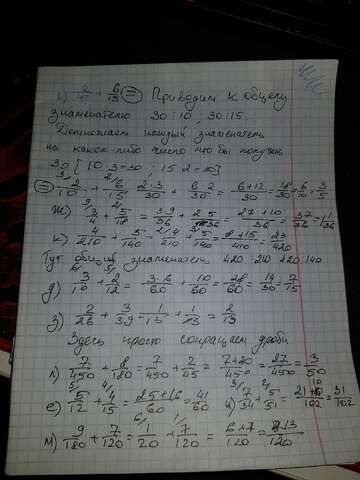 2/10 + 6/15 = Приводим к общему
знаменателю 30:10; 30:15.
Домножаем каждый знаменатель
на какое-либо число что бы получить
30 [10·3=30; 15·2=30]
= 2/10 + 6/15 = 2·3/30 + 6·2/30 = 6+12/30 = 18/30 = 6/10 = 3/5
ж) 3/4 + 5/18 = 3·9/36 + 2·5/36 = 27+10/36 = 37/36 = 1 1/36
к) 4/210 + 5/140 = 8+15/420 = 23/420
Тут общий знаменатель 420:210 420:140
д) 3/10 + 2/12 = 3·6/60 + 10/60 = 28/60 = 14/30 = 7/15
з) 2/26 + 3/39 = 1/13 + 1/13 = 2/13
Здесь просто сокращаем дроби
л) 7/450 + 8/180 = 7/450 + 2/45 = 7+20/450 = 27/450 = 3/50
е) 5/12 + 4/15 = 25+16/60 = 41/60 7/34 + 5/51 = 21+10/102 = 31/102
м) 9/180 + 7/120 = 1/20 + 7/120 = 6+7/120 = 13/120